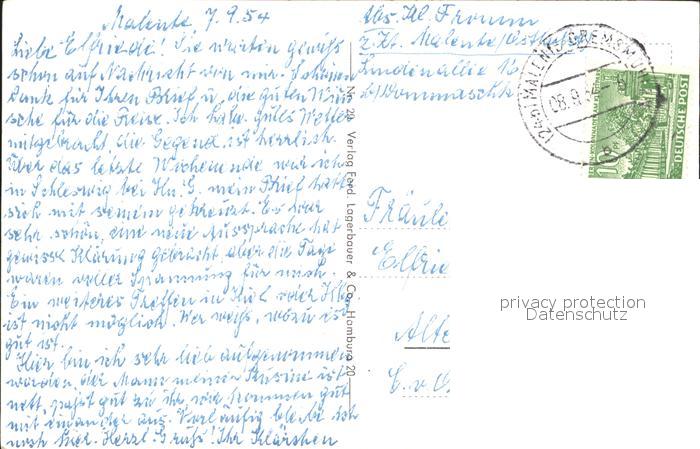 Malente 7.9.54
Liebe Elfriede! Sie warten gewiß
schon auf Nachricht von mir. Schönen
Dank für Ihren Brief u. die guten Wün
sche für die Reise. Ich habe gutes Wetter
mitgebracht, die Gegend ist herrlich.
Über das letzte Wochenende war ich
in Schleswig bei Hn. G. mein Brief hatte
sich mit seinem gekreuzt. Es war
sehr schön, eine neue Aussprache hat
gewisse Klärung gebracht, aber die Tage
waren voller Spannung für mich.
Ein weiteres Treffen in Kiel oder
ist nicht möglich. Wer weiß, wozu es
gut ist.
Hier bin ich sehr lieb aufgenommen
worden, der Mann meiner Kusine ist
nett, paßt gut zu ihr, wir kommen gut
mit einander aus. Vorläufig bleibe ich
noch hier. Herzl. Gruß! Ihr Klärchen
Nr. 29 Verlag Ferd. Lagerbauer & Co., Hamburg 20
Abs. Kl. Fromm
z. Zt. Malente/Ostholst
Lindenallee
b/ Dommasch
Fräule
Elfrie
Alte
(24b) MALENTE-GREMSMÜHLEN
08.9.54
10
DEUTSCHE POST
privacy protection
Datenschutz